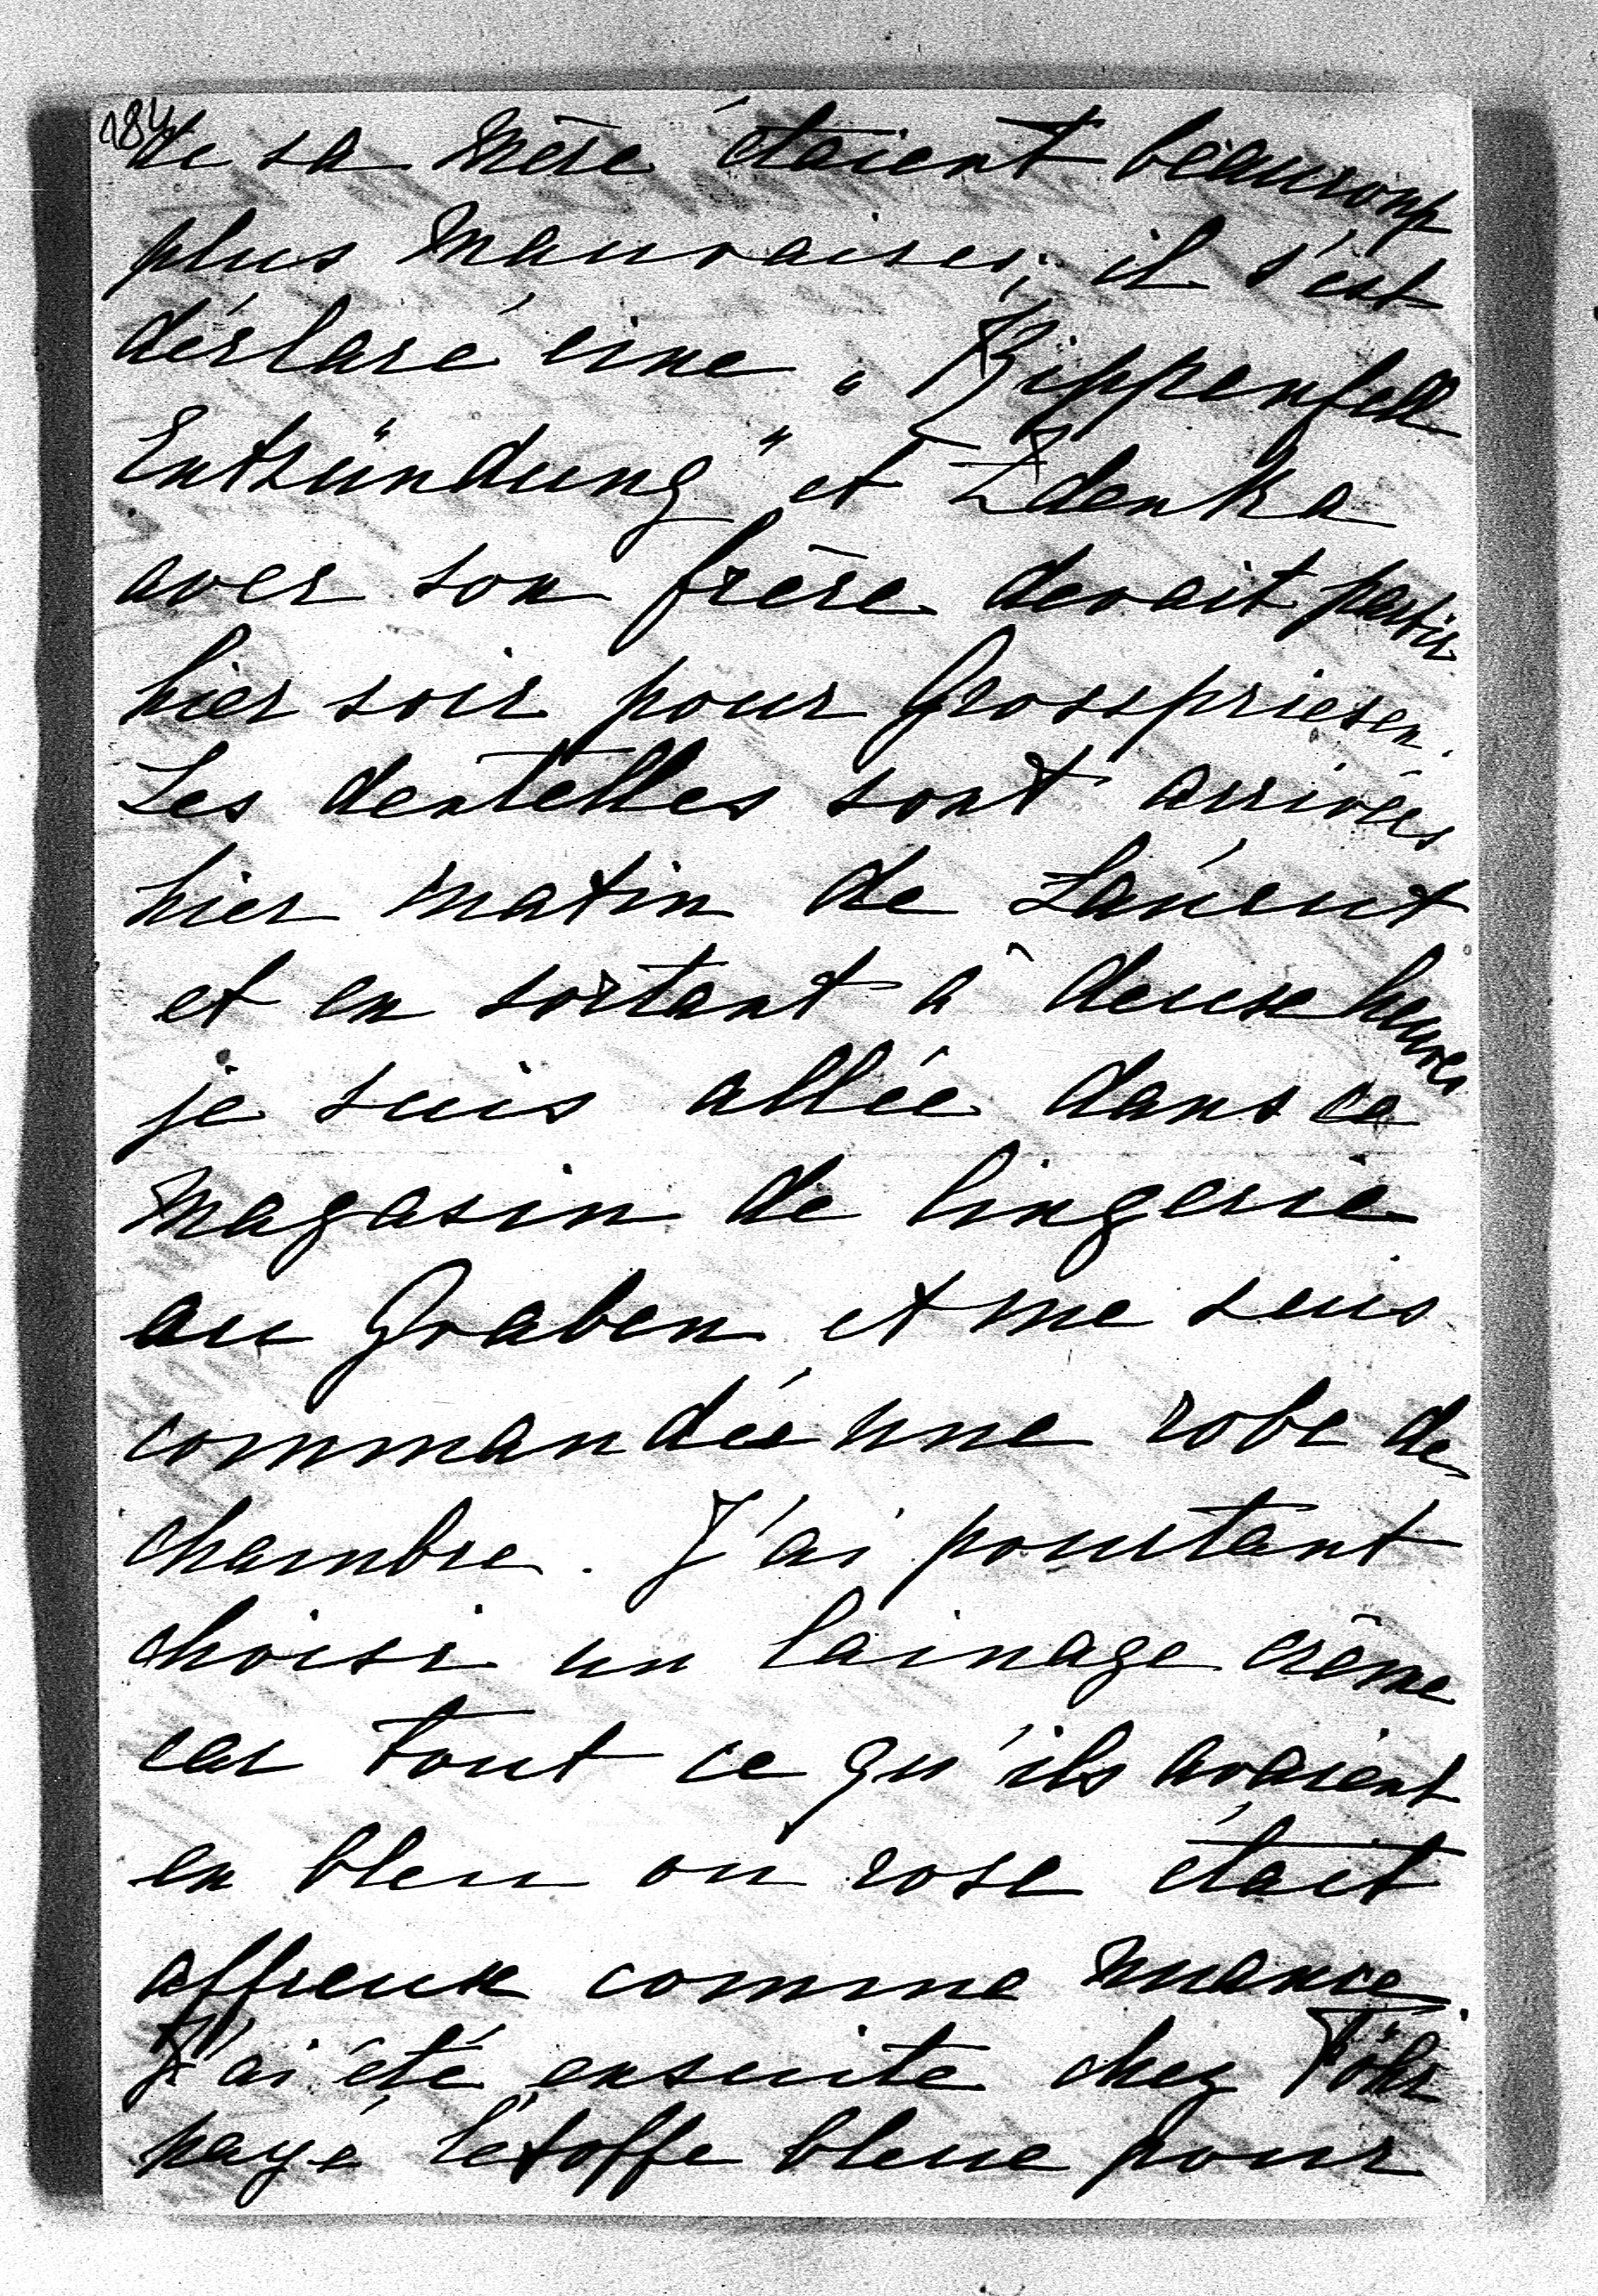 184
de sa mère étaient beaucoup
plus mauvaises; il s'est
déclaré eine „Rippenfell
Entzündung" et Zdenka
avec son frère devait partir
hier soir pour Grosspriesen.
Les dentelles sont arrivées
hier matin de
et en sortant à deux heures
je suis allée dans ce
magasin de lingerie
au Graben et me suis
commandée une robe de
chambre. J'ai pourtant
choisi un lainage crème
car tout ce qu'ils avaient
en bleu ou rose était
affreux comme nuance.
J'ai été ensuite chez
payé l'étoffe bleue pour